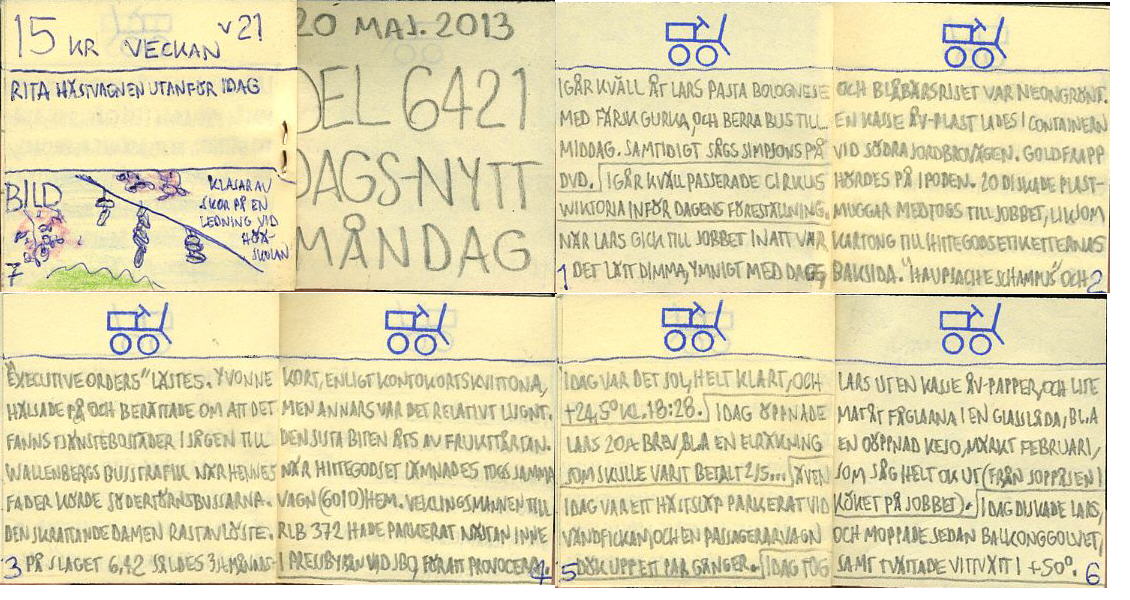 15 KR VECKAN V21
RITA HÄSTVAGNEN UTANFÖR IDAG
BILD
KLASAR AV
SKOR PÅ EN
LEDNING VID
HÖG-
SKOLAN
7
20 MAJ. 2013
DEL 6421
DAGS-NYTT
MÅNDAG
IGÅR KVÄLL ÅT LARS PASTA BOLOGNESE
MED FÄRSK GURKA, OCH BERRA BUS TILL
MIDDAG. SAMTIDIGT SÅGS SIMPSONS PÅ
DVD. IGÅR KVÄLL PASSERADE CIRKUS
WIKTORIA INFÖR DAGENS FÖRESTÄLLNING.
NÄR LARS GICK TILL JOBBET INATT VAR
DET LÄTT DIMMA, YMNIGT MED DAGG,
1
OCH BLÅBÄRSRISET VAR NEONGRÖNT.
EN KASSE ÅV-PLAST LADES I CONTAINERN
VID SÖDRA JORDBROVÄGEN. GOLDFRAPP
HÖRDES PÅ IPODEN. 20 DISKADE PLAST-
MUGGAR MEDTOGS TILL JOBBET, LIKSOM
KARTONG TILL HITTEGODSETIKETTERNAS
BAKSIDA. "HAUPTSACHE SCHAMPUS" OCH
2
"EXECUTIVE ORDERS" LÄSTES. YVONNE
HÄLSADE PÅ OCH BERÄTTADE OM ATT DET
FANNS TJÄNSTEBOSTÄDER I SÅGEN TILL
WALLENBERGS BUSSTRAFIK NÄR HENNES
FADER KÖRDE SÖDERTÖRNSBUSSARNA.
DEN SKRATTANDE DAMEN RASTAVLÖSTE.
PÅ SLAGET 6,42 SÅLDES 3 SL MÅNADS-
3
KORT, ENLIGT KONTOKORTSKVITTONA,
MEN ANNARS VAR DET RELATIVT LUGNT.
DEN SISTA BITEN ÅTS AV FRUKTTÅRTAN.
NÄR HITTEGODSET LÄMNADES TOGS SAMMA
VAGN (6010) HEM. VEKLINGSMANNEN TILL
RLB 372 HADE PARKERAT NÄSTAN INNE
I PRESSBYRÅN VID JBO, FÖR ATT PROVOCERA.
4
IDAG VAR DET SOL, HELT KLART, OCH
+24,5° KL. 18:28. IDAG ÖPPNADE
LARS 20A BREV, BL.A EN ELRÄKNING
SOM SKULLE VARIT BETALT 2/5... ÄVEN
IDAG VAR ETT HÄSTSLÄP PARKERAT VID
VÄNDFICKAN, OCH EN PASSAGERARVAGN
DÖK UPP ETT PAR GÅNGER. IDAG TOG
5
LARS UT EN KASSE ÅV-PAPPER, OCH LITE
MAT ÅT FÅGLARNA I EN GLASSLÅDA, BL.A
EN OÖPPNAD KESO, MÄRKT FEBRUARI,
SOM SÅG HELT OK UT (FRÅN SOPPÅSEN I
KÖKET PÅ JOBBET). IDAG DISKADE LARS,
OCH MOPPADE SEDAN BALKONGGOLVET,
SAMT TVÄTTADE VITTVÄTT I +50°.
6